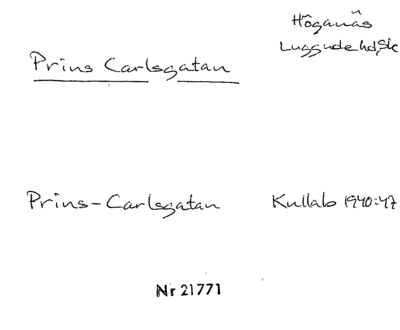 Höganäs
Luggude hd, Sk
Prins Carlsgatan
Prins-Carlsgatan Kullab 1940:47
Nr 21771